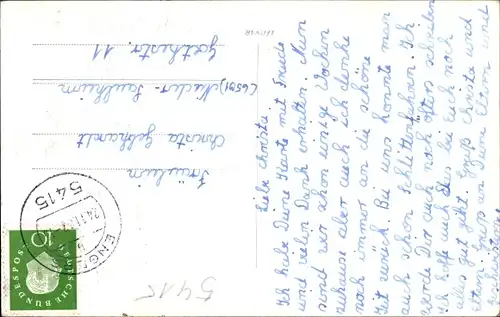 Liebe Christa
Ich habe Deine Karte mit Freude
und vielen Dank erhalten. Nun
sind wir schon einige Wochen
zuhause aber auch ich denke
noch immer an die schöne
Zeit zurück. Bei uns konnte man
auch schon Schlittenfahren. Ich
werde Dir auch noch öfters schreiben
Ich hoffe auch das bei Euch noch
alles gut geht. Gruß Christa und
Eltern. Gruß an Deine Eltern und
Fräulein
Christa Gebhardt
(6501) Nieder-Saulheim
Goethestr. 11
5415
24.11.
10
DEUTSCHE BUNDESPOST
5415